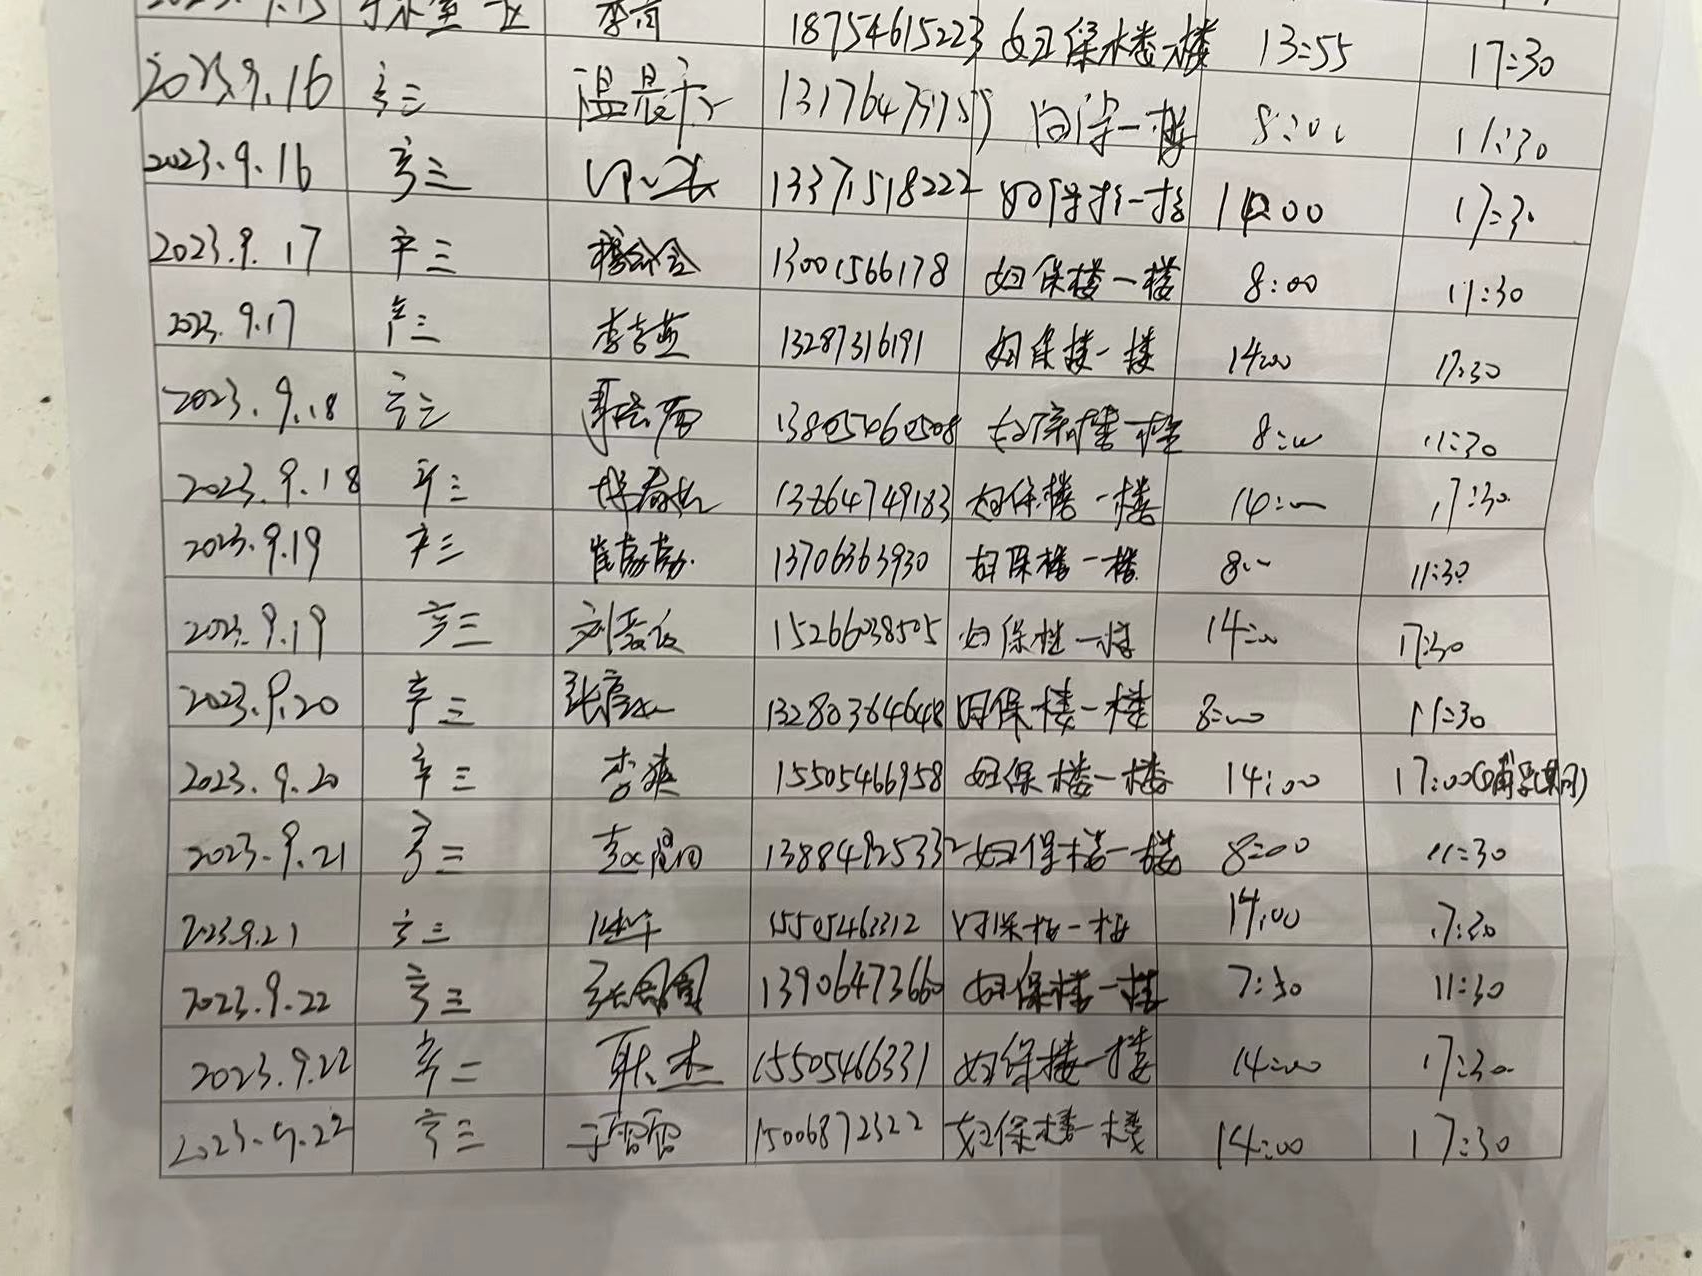 18754615223 妇保楼一楼 13:55 17:30
2023.9.16 辛三 温晨 8:00 11:30
2023.9.16 辛三 13371518222 14:00 17:30
2023.9.17 辛三 13001566178 妇保楼一楼 8:00 11:30
2023.9.17 辛三 李吉英 13287316191 妇保楼一楼 14:00 17:30
2023.9.18 辛三 13805460508 妇保楼一楼 8:00 11:30
2023.9.18 辛三 13864749183 妇保楼一楼 14:00 17:30
2023.9.19 辛三 崔勃勃 13706363930 妇保楼一楼 8:00 11:30
2023.9.19 辛三 15266038505 妇保楼一楼 14:00 17:30
2023.9.20 辛三 13280364648 妇保楼一楼 8:00 11:30
2023.9.20 辛三 李爽 15505466958 妇保楼一楼 14:00 17:00
2023.9.21 辛三 13884925332 妇保楼一楼 8:00 11:30
2023.9.21 辛三 15505463312 妇保楼一楼 14:00 17:30
2023.9.22 辛三 13906473660 妇保楼一楼 7:30 11:30
2023.9.22 辛二 耿杰 15505466331 妇保楼一楼 14:00 17:30
2023.9.22 辛三 于雷雷 15006872322 妇保楼一楼 14:00 17:30